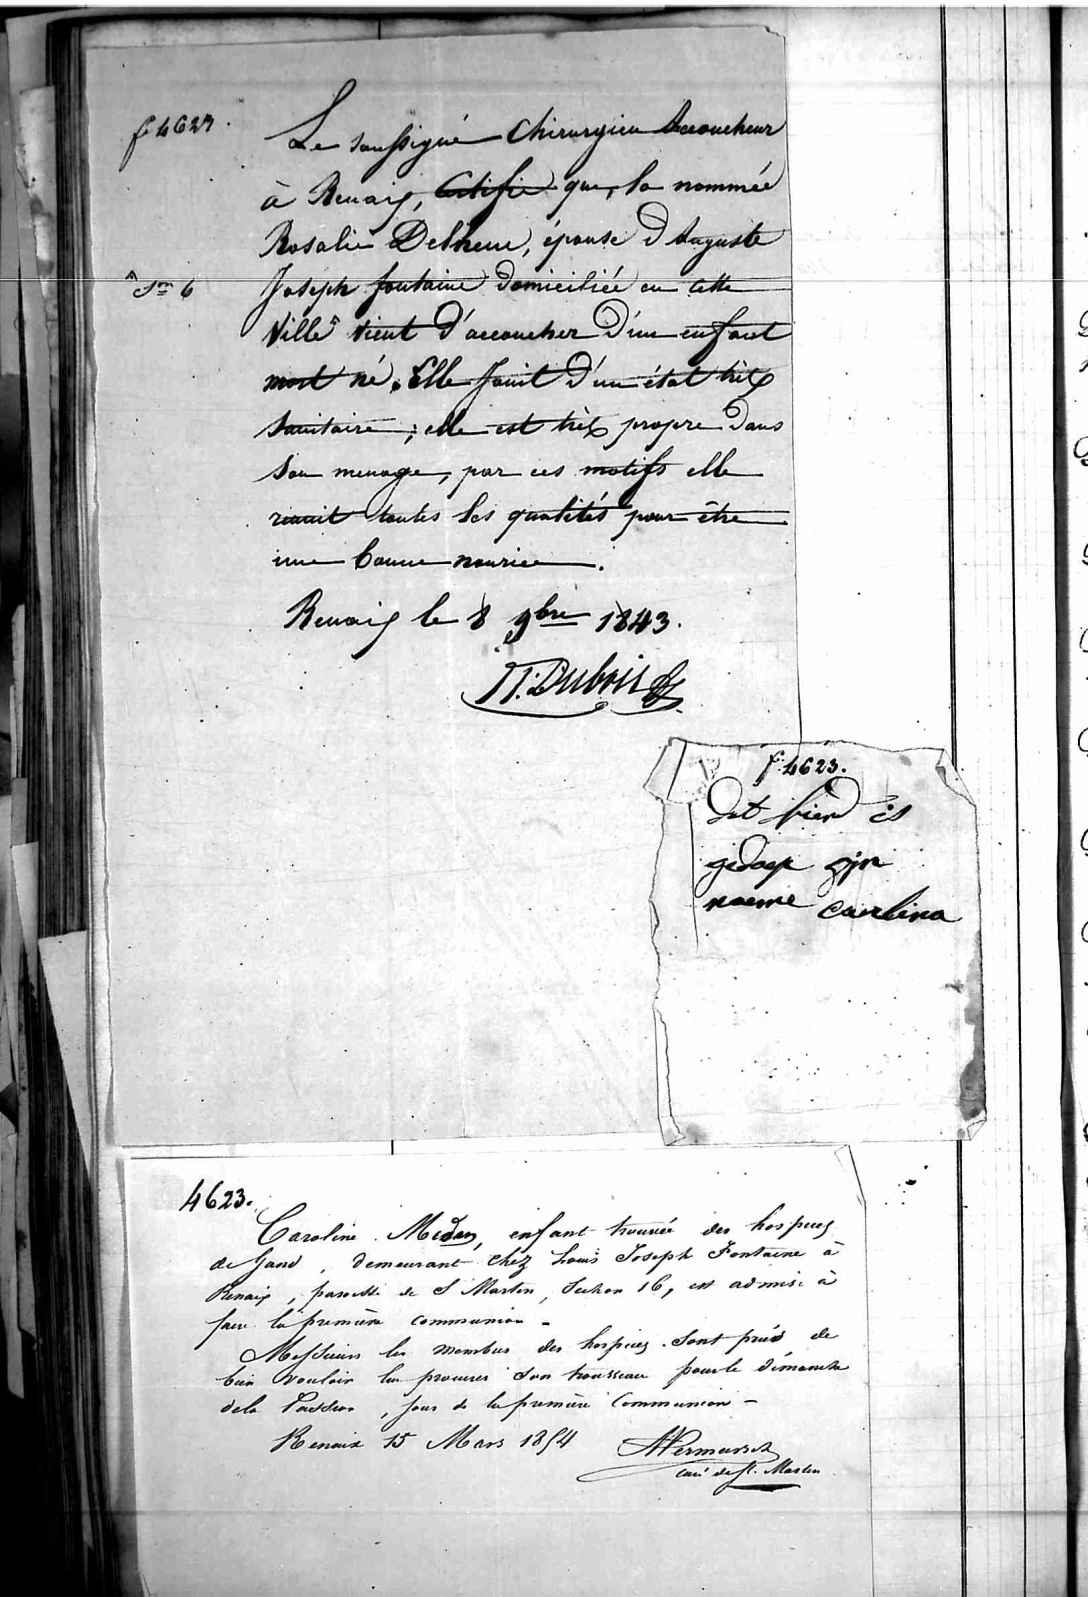 f 4623.
Le soussigné Chirurgien Accoucheur
à Renaix, Certifie que, la nommée
Rosalie Delneue, épouse d'Auguste
Joseph fontaine Domiciliée en cette
^ Son 6
Ville ^ vient d'accoucher D'un enfant
mort né. Elle Jouit D'un état très
Sanitaire; elle est très propre Dans
Son menage, par ces motifs elle
réunit toutes les qualités pour être
une bonne nourice.
Renaix le 8 9bre 1843.
Dubois
f 4623.
dat kien is
gedoept zijn
naeme carlina
4623.
Caroline Medan, enfant trouvée des hospices
de Gand, demeurant chez Louis Joseph Fontaine à
Renaix, paroisse de S Martin, Section 16, est admise à
faire la première communion -
Messieurs les membres des hospices sont priés de
bien vouloir lui procurer son trousseau pour le dimanche
de la Passion, jour de la première Communion -
Renaix 15 Mars 1854
Vermeersch
Curé de St. Martin